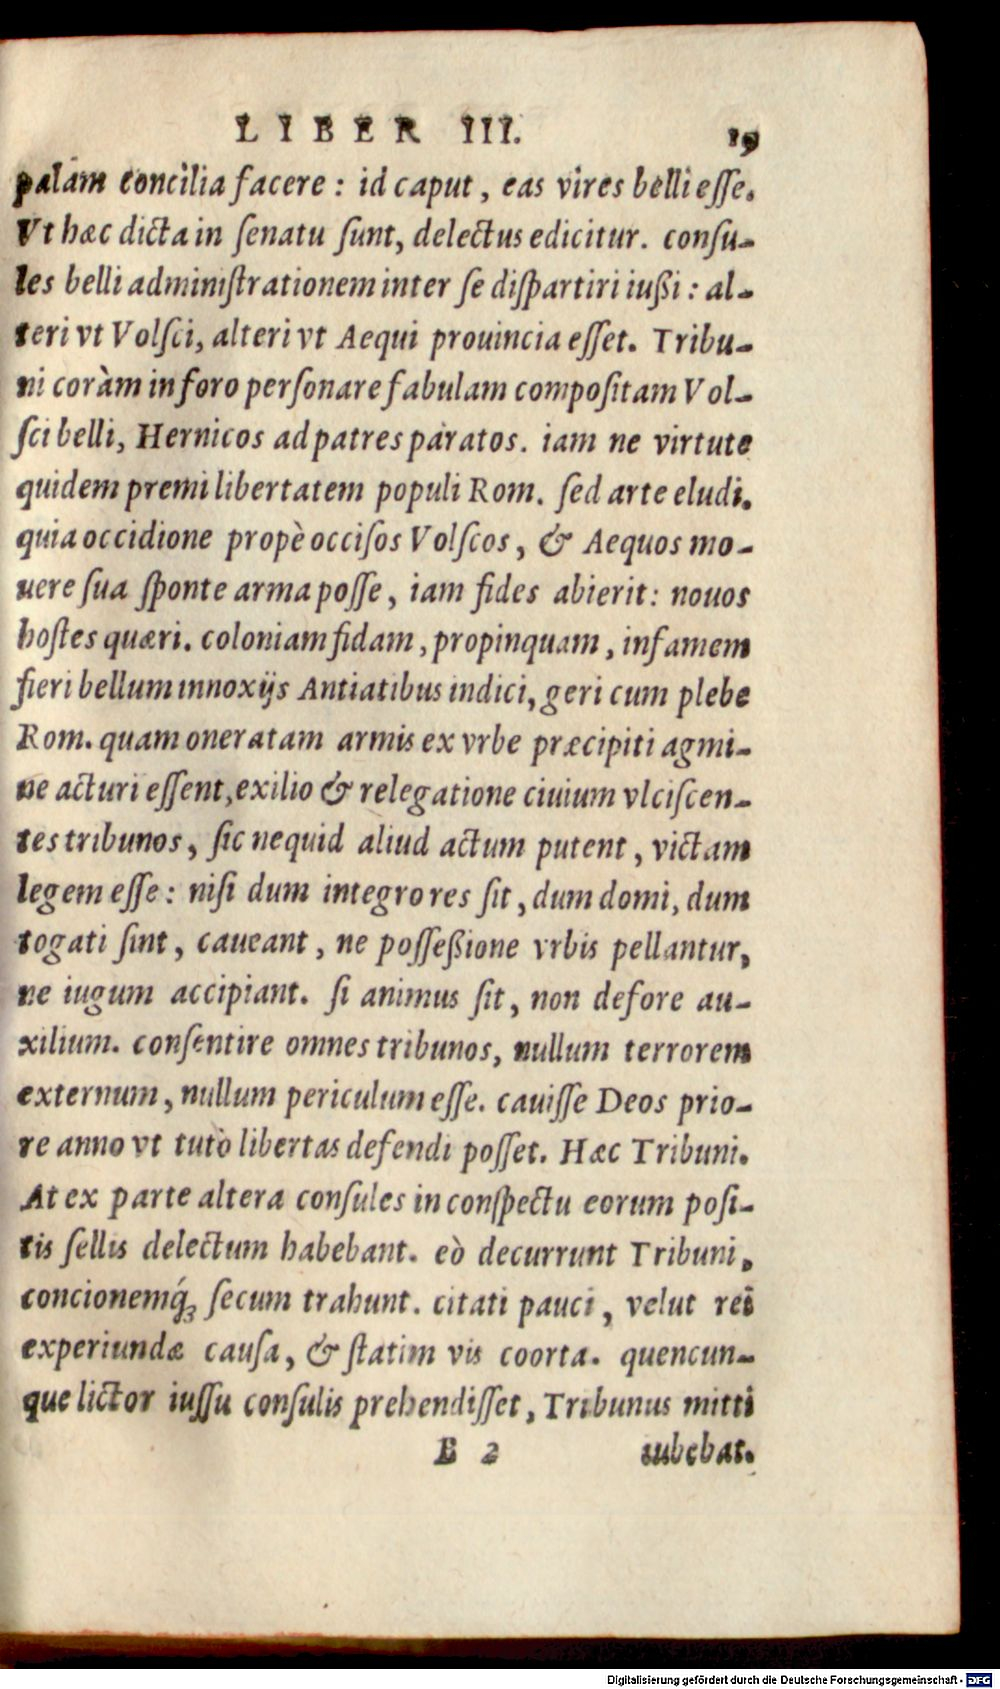 LIBER III. 19
palàm concilia facere : id caput , eas vires belli esse.
Vt hæc dicta in ſenatu ſunt, delectus edicitur. conſu-
les belli adminiſtrationem inter ſe diſpartiri iußi : al-
teri vt Volſci, alteri vt Aequi prouincia eſſet. Tribu-
ni coràm in foro perſonare fabulam compoſitam Vol-
ſci belli, Hernicos ad partes paratos. iam ne virtute
quidem premi libertatem populi Rom. ſed arte eludi.
quia occidione propè occiſos Volſcos , & Aequos mo-
uere ſua ſponte arma poſſe , iam fides abierit : nouos
hoſtes quæri. coloniam fidam , propinquam , infamem
fieri bellum innoxijs Antiatibus indici, geri cum plebe
Rom. quam oneratam armis ex vrbe præcipiti agmi-
ne acturi eſſent, exilio & relegatione ciuium vlciſcen-
tes tribunos , ſic nequid aliud actum putent , victam
legem eſſe : niſi dum integro res ſit , dum domi, dum
togati ſint , caueant , ne poſſeßione vrbis pellantur,
ne iugum accipiant. ſi animus ſit , non defore au-
xilium. conſentire omnes tribunos, nullum terrorem
externum , nullum periculum eſſe. cauiſſe Deos prio-
re anno vt tutò libertas defendi poſſet. Hæc Tribuni.
At ex parte altera conſules in conſpectu eorum poſi-
tis ſellis delectum habebant. eò decurrunt Tribuni,
concionemq́ꝫ ſecum trahunt. citati pauci , velut rei
experiundæ cauſa, & ſtatim vis coorta. quencun-
que lictor iuſſu conſulis prehendiſſet , Tribunus mitti
E 2 iubebat.
Digitalisierung gefördert durch die Deutsche Forschungsgemeinschaft - DFG